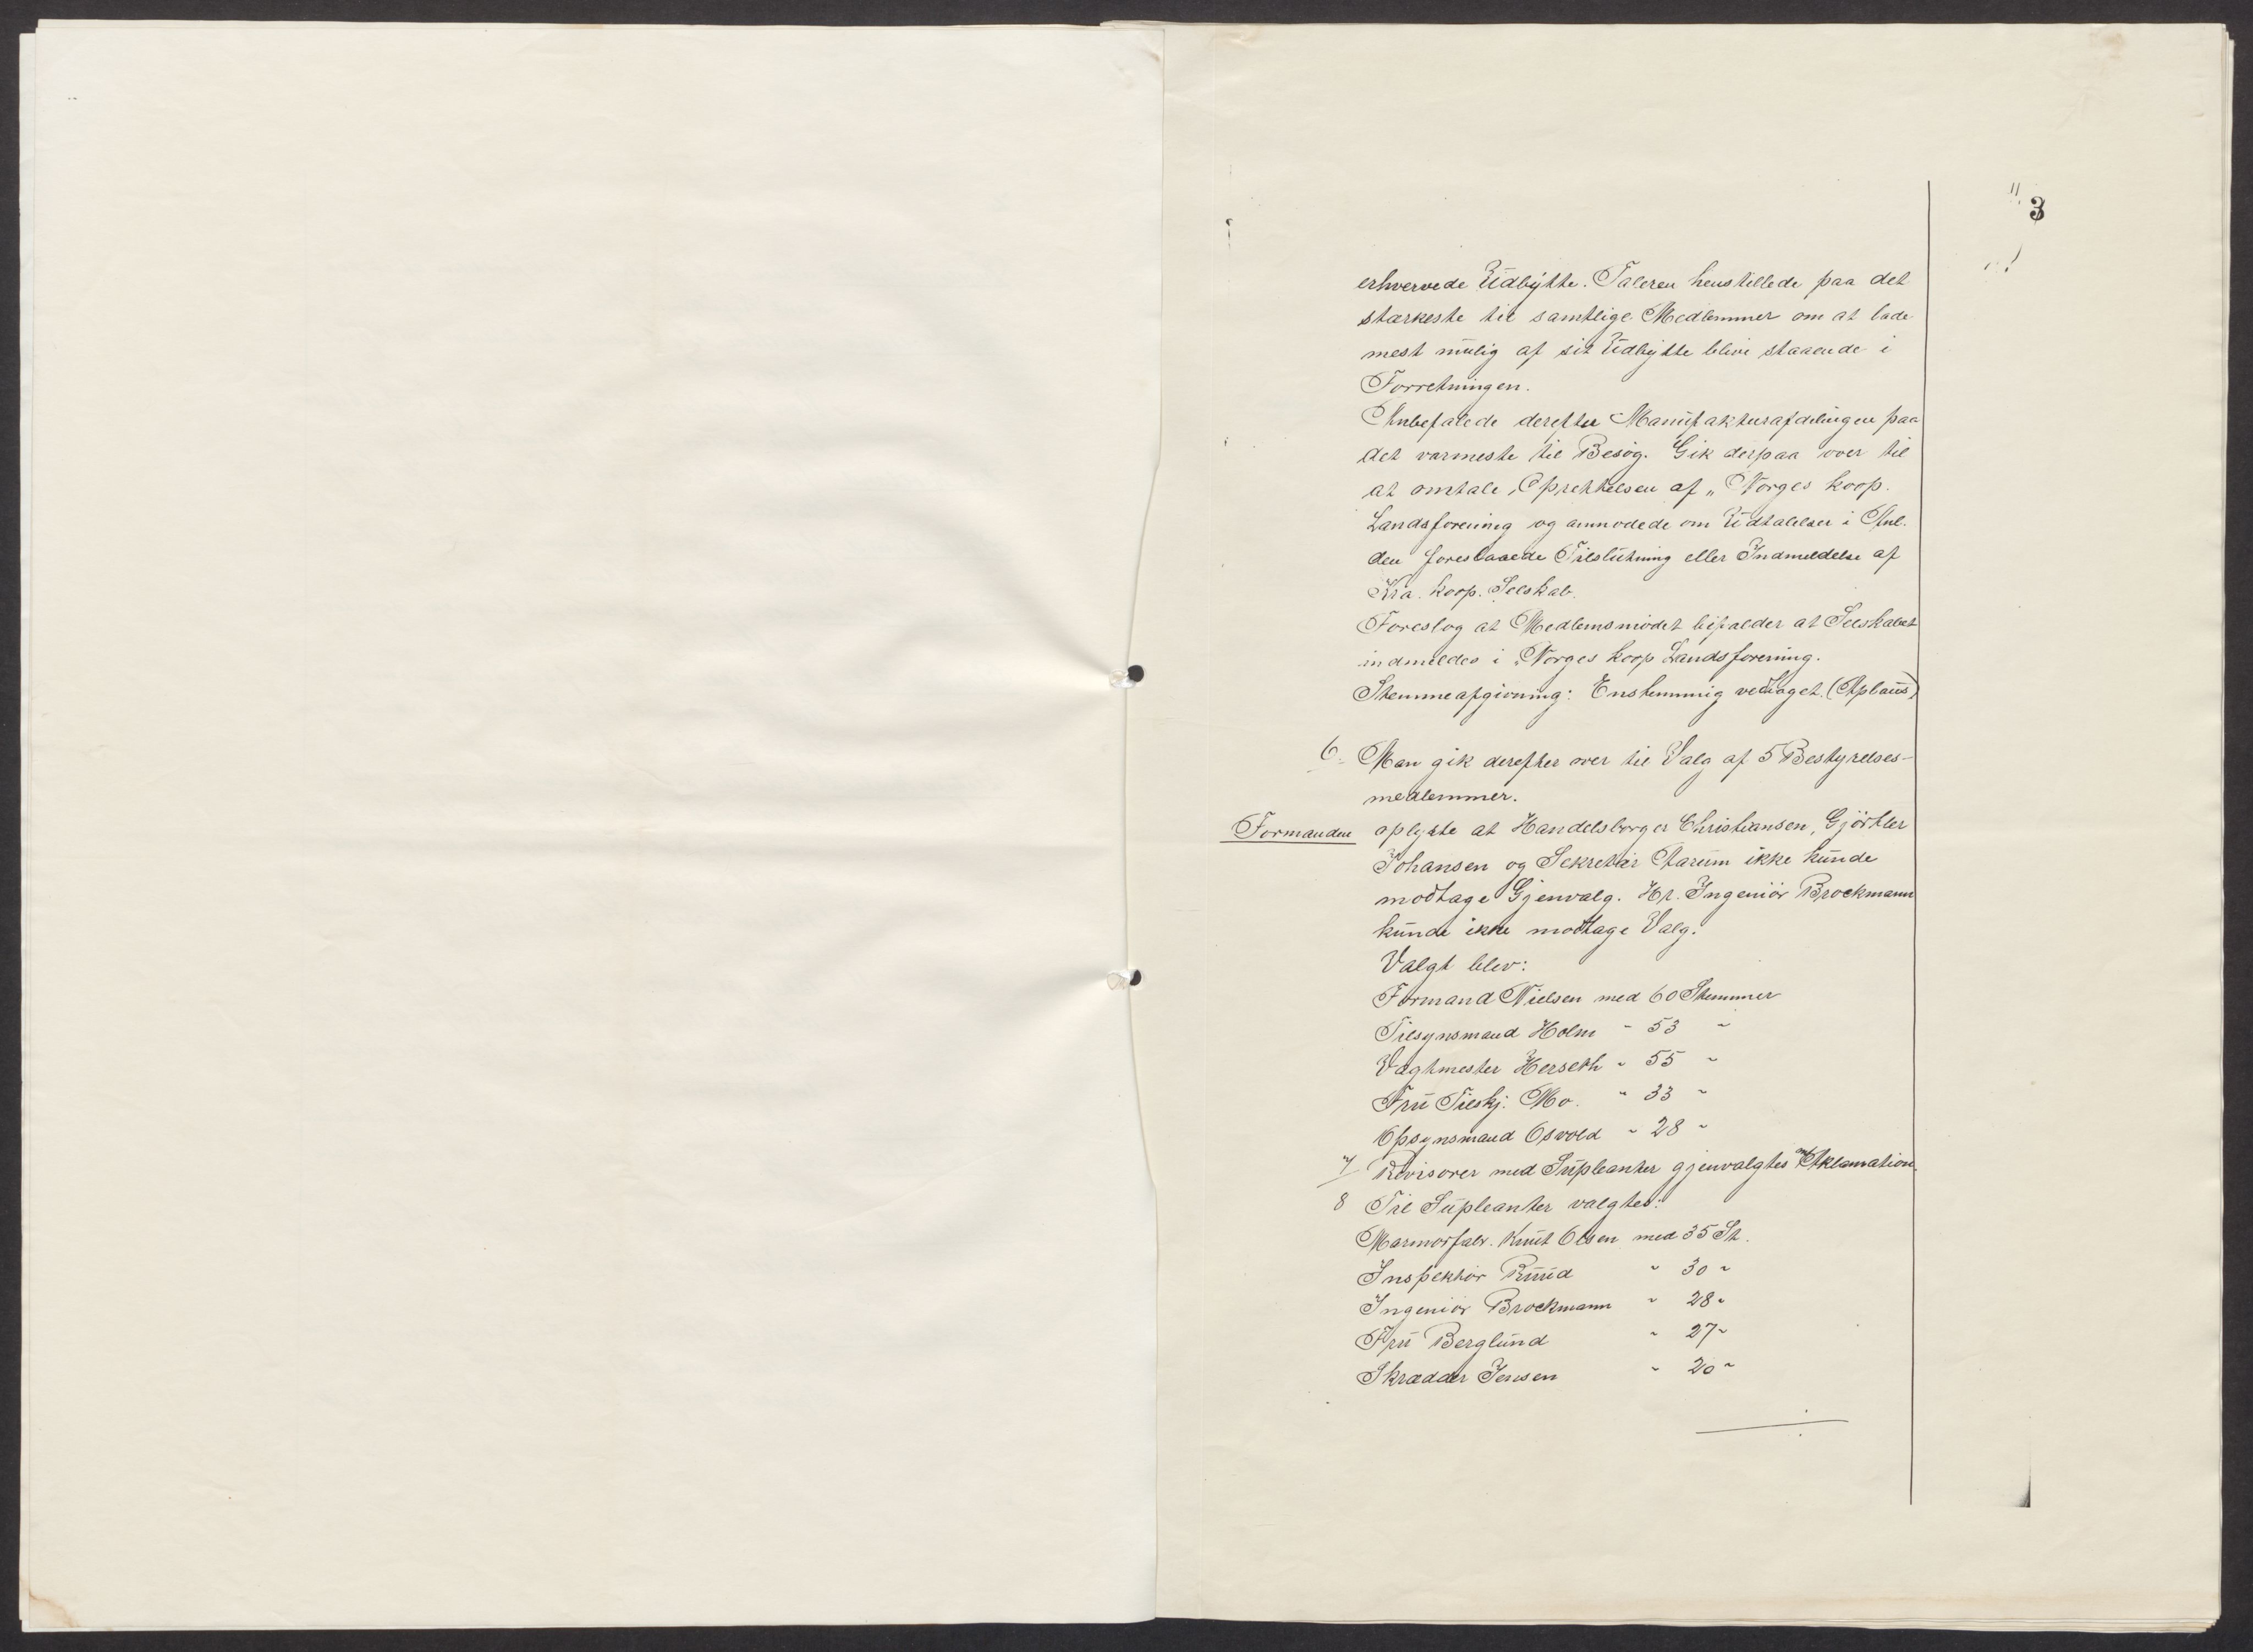 3
erhvervede Udbytte. Taleren henstillede paa det
stærkeste til samtlige Medlemmer om at lade
mest mulig af sit Udbytte blive staaende i
Forretningen.
Anbefalede derefter Manufakturafdelingen paa
det varmeste til Besøg. Gik derpaa over til
at omtale, Oprettelsen af „Norges koop.
Landsforening og anmodede om Udtalelser i Anl.
den foreslaaede Tilslutning eller Indmeldelse af
Kra. koop. Selskab.
Foreslog at Medlemsmødet bifalder at Selskabet
indmeldes i „Norges koop Landsforening.
Stemmeafgivning: Enstemmig vedtaget. (Aplaus)
6. Man gik derefter over til Valg af 5 Bestyrelses-
medlemmer.
Formanden oplyste at Handelsborger Christiansen, Gjørtler
Johansen og Sekretær Aarum ikke kunde
modtage Gjenvalg. Hr. Ingeniør Brockmann
kunde ikke modtage Valg.
Valgt blev:
Formand Nielsen med 60 Stemmer
Tilsynsmand Holm " 53 "
Vagtmester Herseth " 55 "
Fru Tilskj. Mo. " 33 "
Opsynsmand Osvold " 28 "
7/ Revisorer med Supleanter gjenvalgtes ved Aklamation.
8 Til Supleanter valgtes:
Marmorfabr. Knut Olsen med 35 St.
Inspektør Ruud " 30 "
Ingeniør Brockmann " 28 "
Fru Berglund " 27 "
Skrædder Jensen " 20 "